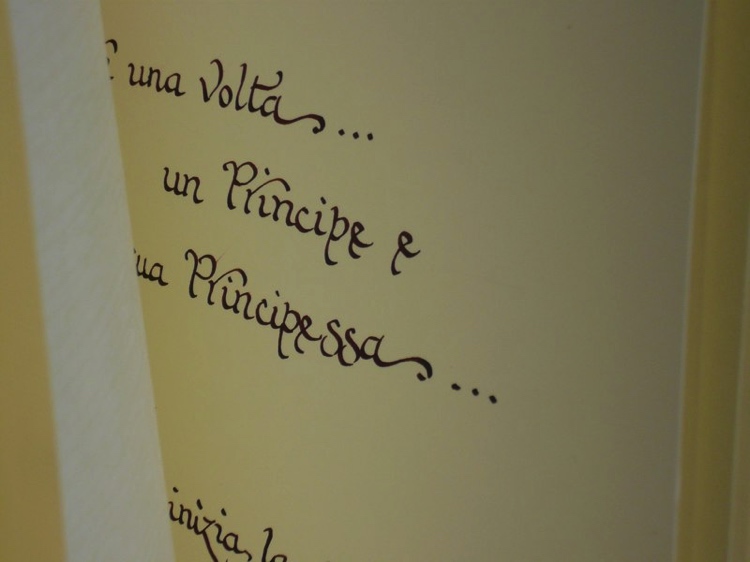 una Volta...
un Principe e
Principessa...
inizia, la